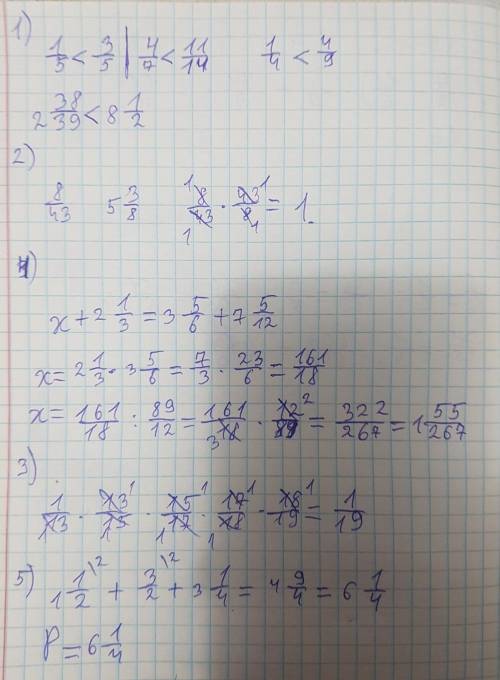 1)
1/5 < 3/5 | 4/7 < 11/14   1/4 < 4/9
2 38/39 < 8 1/2
2)
8/43   5 3/8   8/43 · 43/8 = 1.
4)
x + 2 1/3 = 3 5/6 + 7 5/12
x = 2 1/3 · 3 5/6 = 7/3 · 23/6 = 161/18
x = 161/18 : 89/12 = 161/18 · 12/89 = 322/267 = 1 55/267
3)
1/13 · 13/15 · 15/17 · 17/18 · 18/19 = 1/19
5) 1 1/2 + 3/2 + 3 1/4 = 4 9/4 = 6 1/4
P = 6 1/4